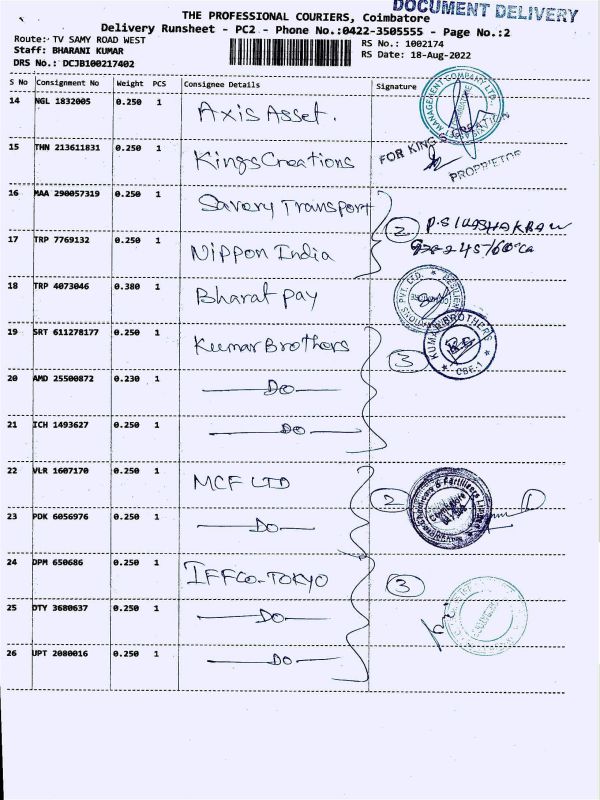 DOCUMENT DELIVERY
THE PROFESSIONAL COURIERS, Coimbatore
Delivery Runsheet - PC2 - Phone No.:0422-3505555 - Page No.:2
Route: TV SAMY ROAD WEST
RS No.: 1002174
Staff: BHARANI KUMAR
RS Date: 18-Aug-2022
DRS No.: DCJB100217402
S No Consignment No Weight PCS Consignee Details Signature
14 NGL 1832005 0.250 1 Axis Asset.
MANAGEMENT COMPANY LTD.
15 THN 213611831 0.250 1 Kings Creations
FOR KINGS CREATION
PROPRIETOR
16 MAA 290057319 0.250 1 Savery Transport
2
17 TRP 7769132 0.250 1 Nippon India
18 TRP 4073046 0.380 1 Bharat pay
PVT. LTD.
19 SRT 611278177 0.250 1 Kumar Brothers
3 KUMAR BROTHERS
CBE-1
20 AMD 25500872 0.230 1 Do
21 ICH 1493627 0.250 1 Do
22 VLR 1607170 0.250 1 MCF LTD
2
23 PDK 6056976 0.250 1 Do
24 DPM 650686 0.250 1 IFFCO-TOKYO
3
25 DTY 3680637 0.250 1 Do
26 UPT 2080016 0.250 1 Do